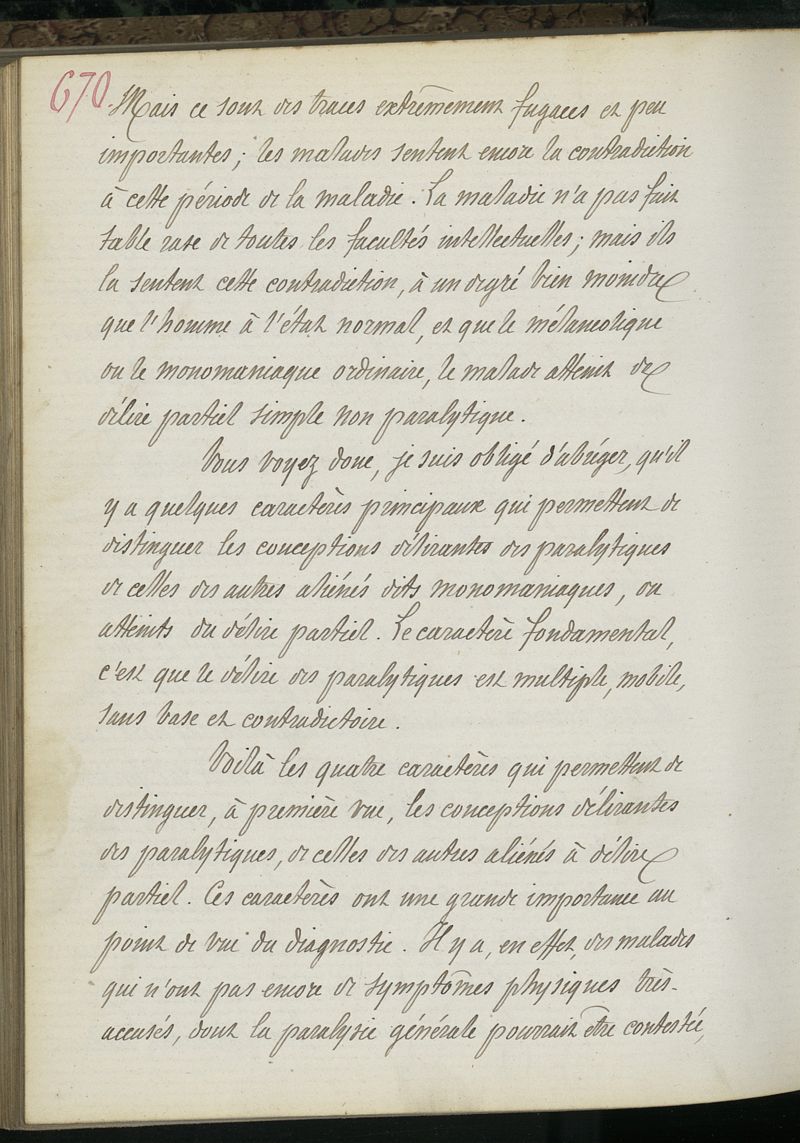 670
Mais ce sont des traces extrêmement fugaces et peu
importantes ; les malades sentent encore la contradiction
à cette période de la maladie. La maladie n'a pas fait
table rase de toutes les facultés intellectuelles ; mais ils
la sentent cette contradiction, à un degré bien moindre
que l'homme à l'état normal, et que le mélancolique
ou le monomaniaque ordinaire, le malade atteint de
délire partiel simple non paralytique.
Vous voyez donc, je suis obligé d'abréger, qu'il
y a quelques caractères principaux qui permettent de
distinguer les conceptions délirantes des paralytiques
de celles des autres aliénés dits monomaniaques, ou
atteints du délire partiel. Le caractère fondamental,
c'est que le délire des paralytiques est multiple, mobile,
sans base et contradictoire.
Voilà les quatre caractères qui permettent de
distinguer, à première vue, les conceptions délirantes
des paralytiques, de celles des autres aliénés à délire
partiel. Ces caractères ont une grande importance au
point de vue du diagnostic. Il y a, en effet, des malades
qui n'ont pas encore de symptômes physiques très-
accusés, dont la paralysie générale pourrait être contestée,